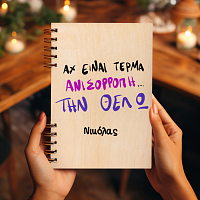 ΑΧ ΕΙΝΑΙ ΤΕΡΜΑ
ΑΝΙΣΟΡΡΟΠΗ...
ΤΗΝ ΘΕΛΩ
Νικόλας